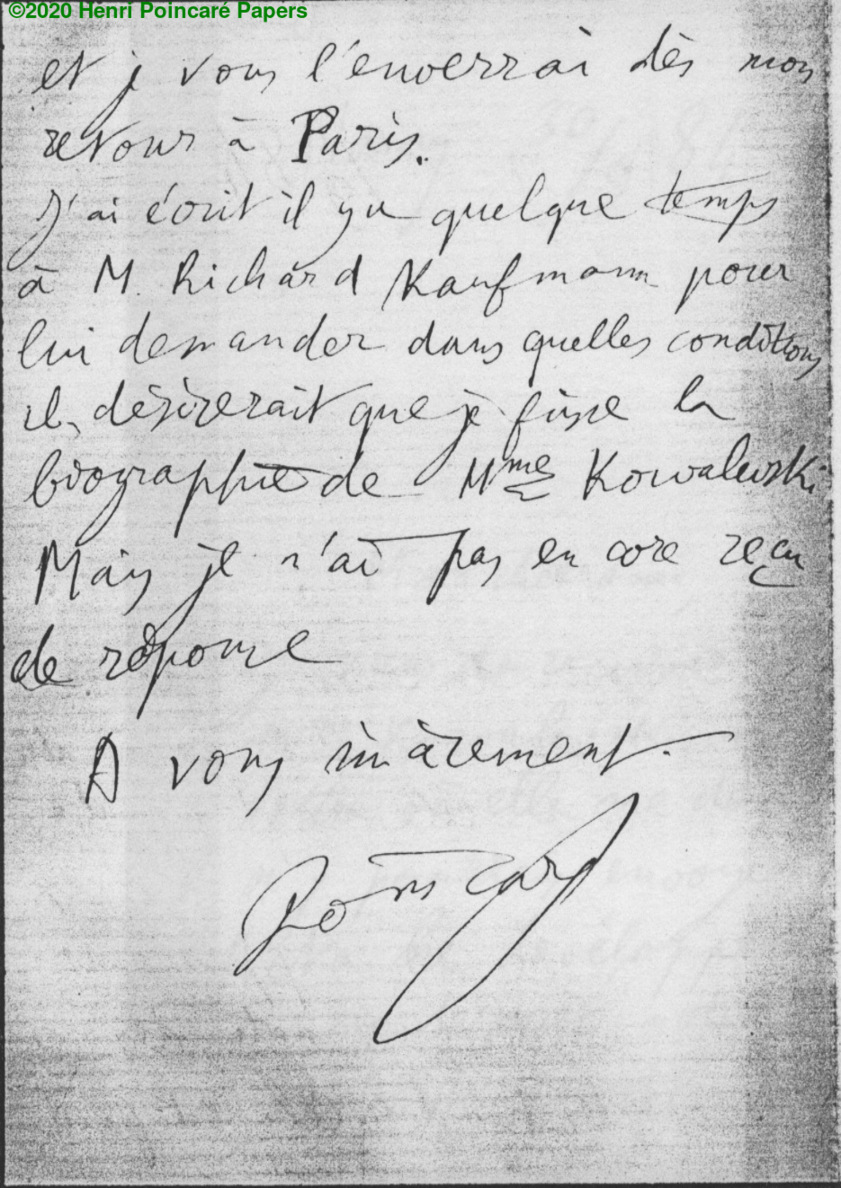 ©2020 Henri Poincaré Papers
et je vous l'enverrai dès mon
retour à Paris.
J'ai écrit il y a quelque temps
à M. Richard Kaufmann pour
lui demander dans quelles conditions
il désirerait que je fisse la
biographie de Mme Kowalewski
Mais je n'ai pas encore reçu
de réponse
A vous sincèrement.
Poincaré